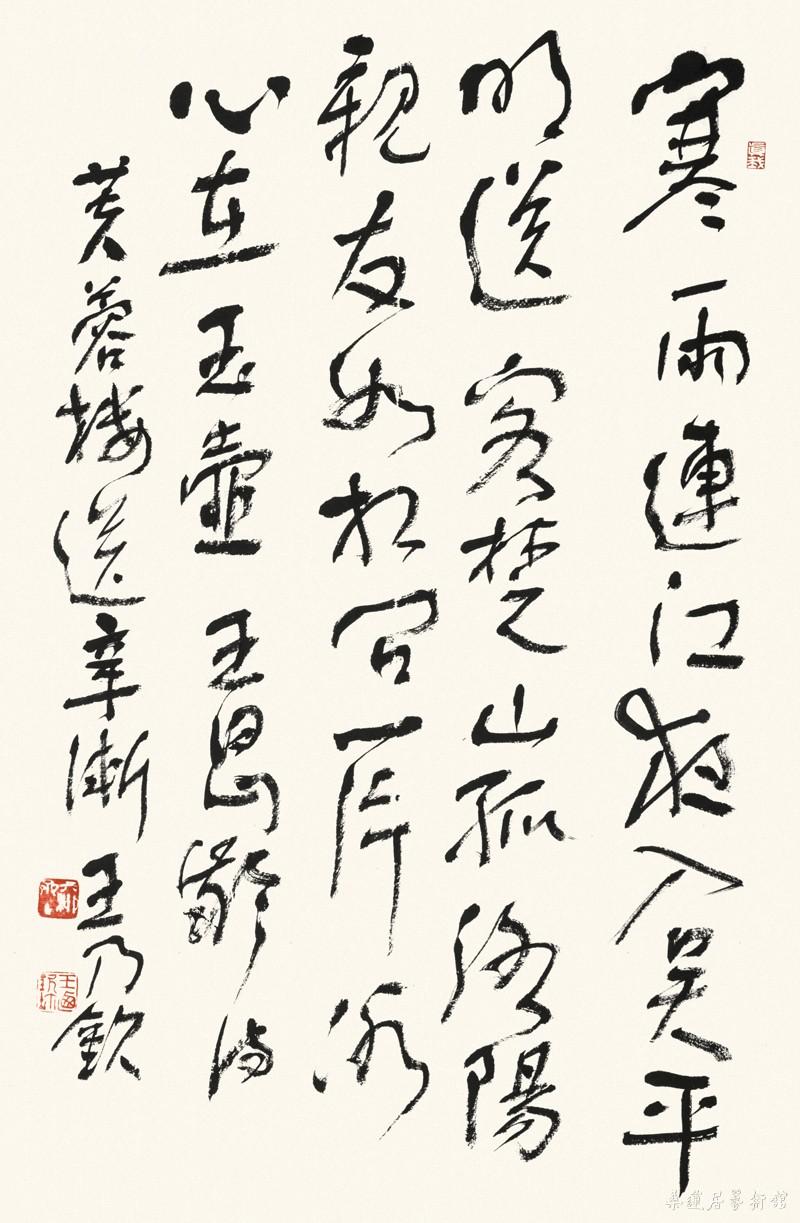 寒雨連江夜入吴平
明送客楚山孤洛陽
親友如相問一片冰
心在玉壺 王昌齡詩
芙蓉樓送辛漸 王乃欽
蓮居藝術館